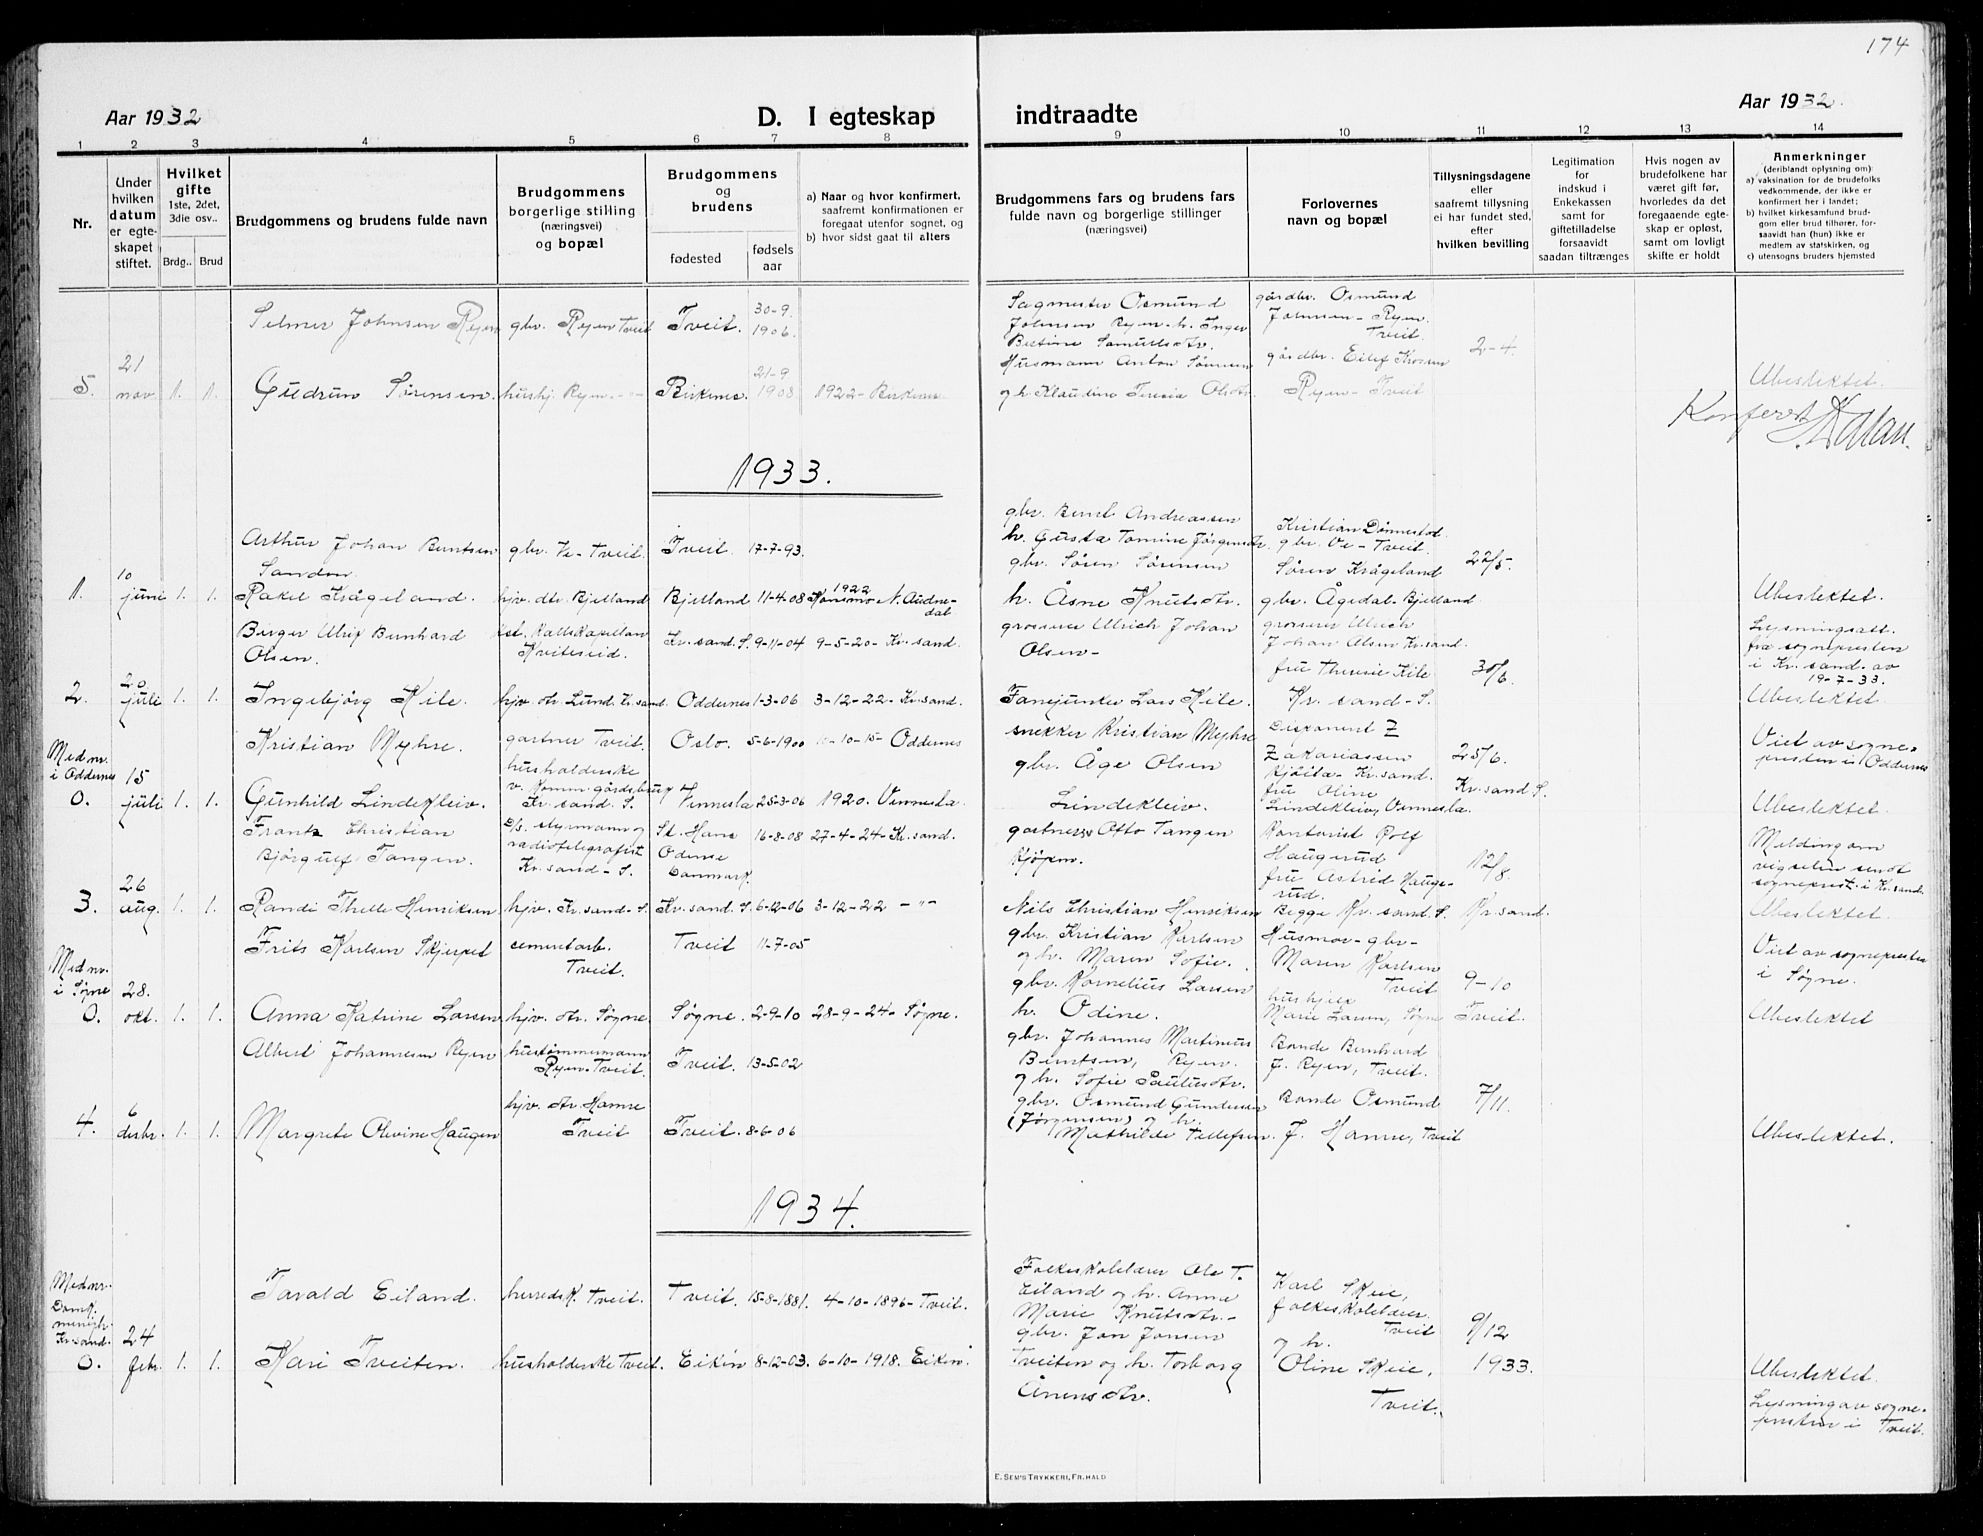 174
Aar 1932
D. I egteskap
indtraadte
Aar 1932.
1 2 3 4 5 6 7 8 9 10 11 12 13 14
Nr.
Under hvilken datum er egteskapet stiftet.
Hvilket gifte
1ste, 2det, 3die osv..
Brdg.. Brud
Brudgommens og brudens fulde navn
Brudgommens borgerlige stilling (næringsvei) og bopæl
Brudgommens og brudens
fødested
fødsels aar
a) Naar og hvor konfirmert, saafremt konfirmationen er foregaat utenfor sognet, og
b) hvor sidst gaat til alters
Brudgommens fars og brudens fars fulde navn og borgerlige stillinger (næringsvei)
Forlovernes navn og bopæl
Tillysningsdagene eller saafremt tillysning ei har fundet sted, efter hvilken bevilling
Legitimation for indskud i Enkekassen samt for giftetilladelse forsaavidt saadan tiltrænges
Hvis nogen av brudefolkene har været gift før, hvorledes da det foregaaende egteskap er opløst, samt om lovligt skifte er holdt
Anmerkninger
(deriblandt oplysning om):
a) vaksination for de brudefolks vedkommende, der ikke er konfirmert her i landet;
b) hvilket kirkesamfund brudgom eller brud tilhører, forsaavidt han (hun) ikke er medlem av statskirken, og
c) utensogns bruders hjemsted
Selmer Johnsen Ryen gbr. Ryen Tveit Tveit. 30-9 1906.
Sagmester Osmund Johnsen Ryen h. Inger Bestine Samuelsdtr.
gårdbr. Osmund Johnsen - Ryen. Tveit.
2-4.
5. 21 nov. 1. 1. Gudrun Sørensen. hushj. Ryen. -"- Birkenes. 21-9 1908 1922 - Birkenes
Husmann Anton Sørensen og h. Klaudine Teresia Olsdtr.
gårdbr. Eilef Krossen Ryen - Tveit
Ubeslektet.
Konferert
1933.
Arthur Johan Berntsen Sanden gbr. Ve - Tveit. Tveit. 17-7-93.
gbr. Bernt Andreassen h. Gusta Tomine Jørgensdtr.
Kristian Dønnestad gbr. Ve - Tveit.
22/5.
1. 10 juni 1. 1. Rakel Krågeland. hjv. dtr. Bjelland Bjelland 11-4-08 1922 Konsmo N. Audnedal
gbr. Søren Sørensen h. Åsne Knutsdtr.
Søren Krågeland gbr. Ågedal - Bjelland.
Ubeslektet.
Birger Ulrik Bernhard Olsen. Kviteseid. Kr.sand. S. 9-11-04 9-5-20 - Kr. sand.
grosserer Ulrich Johan Olsen -
grosserer Ulrich Johan Olsen Kr.sand.
30/6.
Lysningsatt. fra sognepresten i Kr. sand. av 19-7-33.
2. 20 juli 1. 1. Ingebjørg Kile. hjv. dtr. Lund. Kr.sand. Oddernes 1-3-06 3-12-22 - Kr.sand.
Fanejunker Lars Kile.
fru Therese Kile Kr. sand - S.
Ubeslektet.
Med nr. i Oddernes
Kristian Myhre. gartner Tveit. Oslo. 5-6-1900 -10-15 - Oddernes
snekker Kristian Myhre
Disponent Z Zakariassen Kr.sand.
25/6.
Kr.sand S.
Viet av sognepresten i Oddernes
0. 15 juli 1. 1. Gunhild Lindekleiv. husholderske v. Komm. gårdsbruk Kr. sand. S. Vennesla 25-3-06 1920. Vennesla
gbr. Åge Olsen Lindekleiv.
fru Oline Lindekleiv, Vennesla.
Ubeslektet.
Frantz Christian Bjørgulf Tangen. styrmann og radiotelegrafist Kr.sand - S. St. Hans Odense Danmark. 16-8-08 27-4-24 - Kr.sand.
gartner Otto Tangen Kjøpm.
Kontorist Rolf Haugerud
12/8.
Kr.sand.
Melding om vigselen sendt sogneprest. i Kr.sand.
3. 26 aug. 1. 1. Randi Thelle Henriksen hjv. Kr.sand - S. Kr.sand. S. 6-12-06 3-12-22 - "-
Nils Christian Henriksen
fru Astrid Haugerud. Begge Kr. sand. S.
Ubeslektet.
Med nr. i Søgne
Frits Karlsen Skjerpet cementarb. Tveit. Tveit 11-7-05
gbr. Kristian Karlsen og h. Maren Sofie.
Husmor - gbr - Maren Karlsen Tveit
9-10
Tveit.
Viet av sognepresten i Søgne.
0. 28. okt. 1. 1. Anna Katrine Larsen hjv. dtr. Søgne. Søgne. 2-9-10 28-9-24 - Søgne.
gbr. Kornelius Larsen h. Odine.
hushjelp Marie Larsen, Søgne
Ubeslektet
Albert Johannesen Ryen hustømmermann Ryen - Tveit. Tveit. 13-5-02
gbr. Johannes Martinius Berntsen, Ryen. og h. Sofie Paulusdtr.
Bonde Bernhard J. Ryen, Tveit.
7/11.
4. 6 desbr. 1. 1. Margrete Olivine Haugen hjv. dtr. Hamre Tveit Tveit. 8-6-06
gbr. Osmund Gundersen (Jørgensen) og h. Mathilde Tellefsen.
Bonde Osmund J. Hamre, Tveit
Ubeslektet.
1934.
Med nr. Domk. menigh. Kr.sand.
Tarald Eiland. herredsk. Tveit. Tveit. 15-8-1881. 4-10-1896 - Tveit.
Folkeskolelærer Ole T. Eiland og h. Anne Marie Knutsdtr. -
Karl Skeie, folkeskolelærer. Tveit
9/12 1933.
0. 24 febr. 1. 1. Kari Tveiten. husholderske Tveit. Eiken 8-12-03. 6-10-1918. Eiken
gbr. Jon Jonsen Tveiten og h. Torborg Ånensdtr.
og h. Oline Skeie, Tveit.
Ubeslektet.
Lysning av sognepresten i Tveit.
E. SEM'S TRYKKERI, FR.HALD